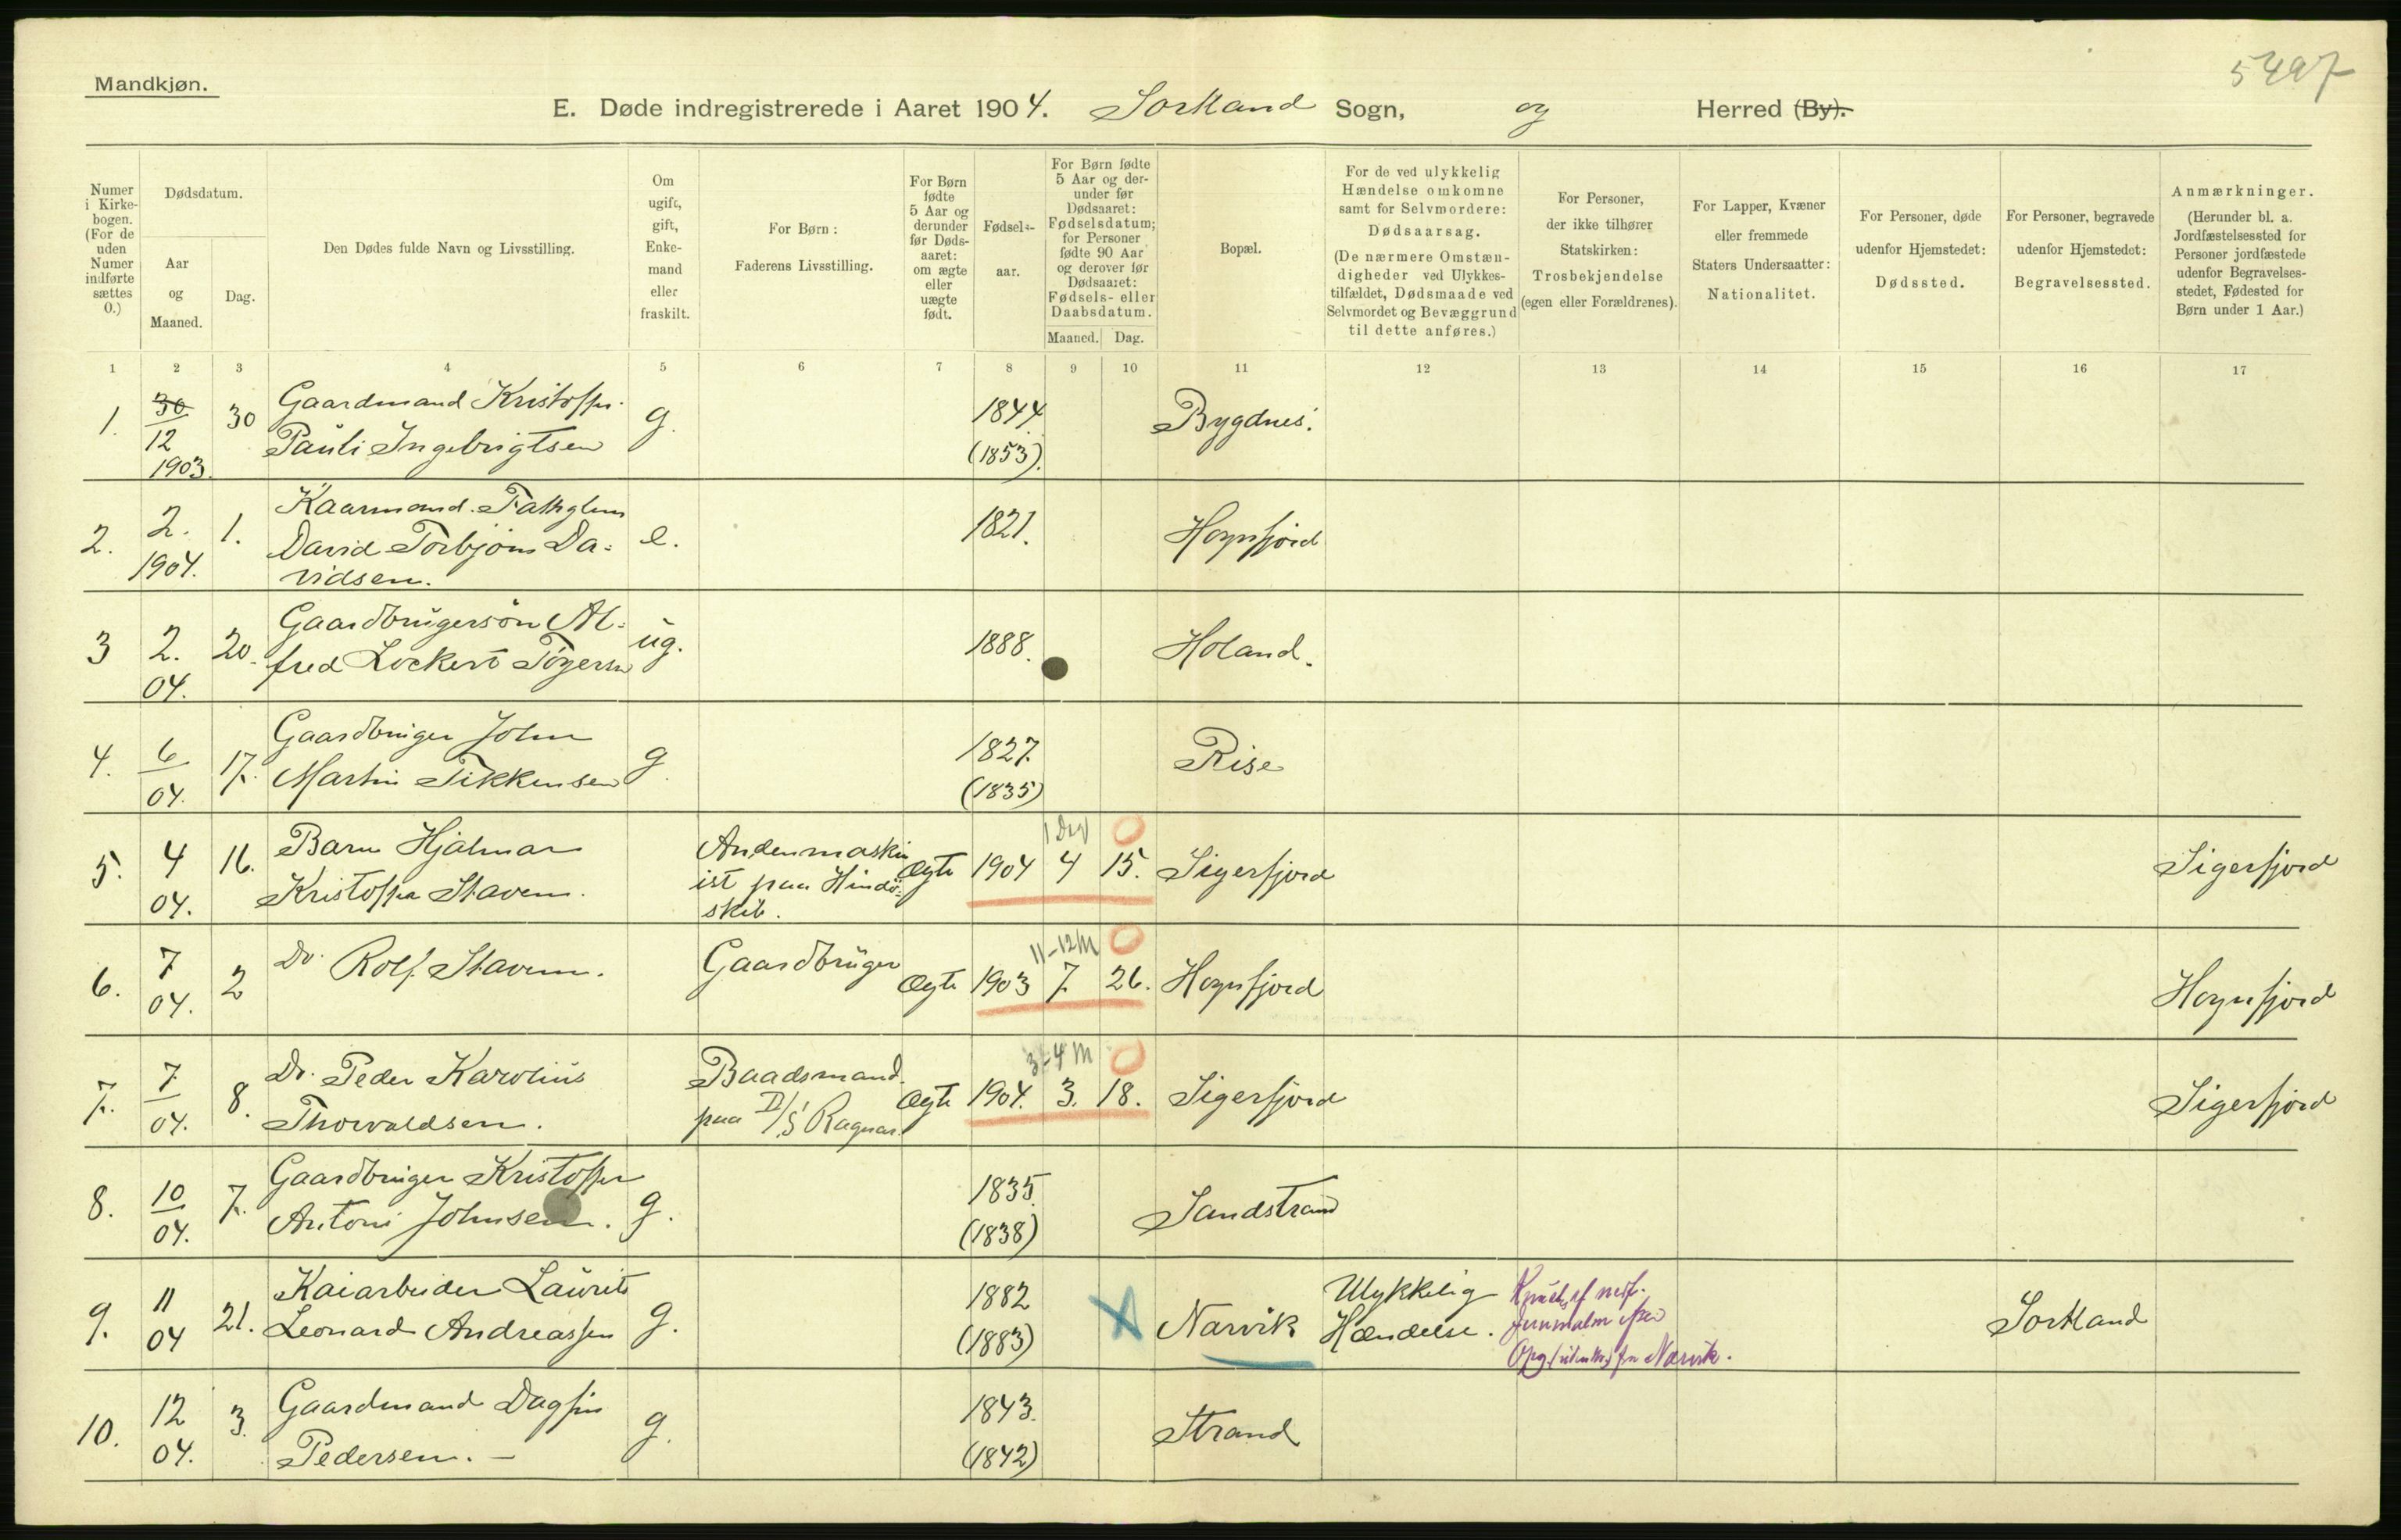 5497
Mandkjøn.
E. Døde indregistrerede i Aaret 1904. Sortland Sogn, og Herred (By).
Numer i Kirke-bogen. (For de uden Numer indførte sættes 0.)
Dødsdatum.
Aar og Maaned.
Dag.
Den Dødes fulde Navn og Livsstilling.
Om ugift, gift, Enke-mand eller fraskilt.
For Børn: Faderens Livsstilling.
For Børn fødte 5 Aar og derunder før Døds-aaret: om ægte eller uægte født.
Fødsels-aar.
For Børn fødte 5 Aar og der-under før Dødsaaret: Fødselsdatum; for Personer fødte 90 Aar og derover før Dødsaaret: Fødsels- eller Daabsdatum.
Maaned. Dag.
Bopæl.
For de ved ulykkelig Hændelse omkomne samt for Selvmordere: Dødsaarsag. (De nærmere Omstæn-digheder ved Ulykkes-tilfældet, Dødsmaade ved Selvmordet og Bevæggrund til dette anføres.)
For Personer, der ikke tilhører Statskirken: Trosbekjendelse (egen eller Forældrenes).
For Lapper, Kvæner eller fremmede Staters Undersaatter: Nationalitet.
For Personer, døde udenfor Hjemstedet: Dødssted.
For Personer, begravede udenfor Hjemstedet: Begravelsessted.
Anmærkninger. (Herunder bl. a. Jordfæstelsessted for Personer jordfæstede udenfor Begravelses-stedet, Fødested for Børn under 1 Aar.)
1 2 3 4 5 6 7 8 9 10 11 12 13 14 15 16 17
1. 30 30 Gaardmand Kristoffer g. 1844 Bygdnes.
12 Pauli Ingebrigtsen (1853).
1903.
2. 2. 1. Kaarmand
David Torbjörn Da- e. 1821. Hognfjord
1904. vidsen.
3 2. 20. Gaardbrugersön Al- ug. 1888. Holand.
04. fred Lockert Tögersen
4. 6 17. Gaardbruger John g. 1827. Rise
04. Martin Tikkensen (1835)
1 D 0
5. 4 16. Barn Hjalmar Andenmaskin Ægte 1904 4 15. Sigerfjord Sigerfjord
04. Kristoffer Stavem. ist paa Hindö-
skib.
11-12 M 0
6. 7 2 Do. Rolf Stavem. Gaardbruger Ægte 1903 7. 26. Hognfjord Hognfjord
04.
3-4 M 0
7. 7 8. Do. Peder Karolius Baadsmand Ægte 1904. 3. 18. Sigerfjord Sigerfjord
04. Thorvaldsen. paa D/S Ragnar.
8. 10 7. Gaardbruger Kristoffer g. 1835. Sandstrand
04. Antoni Johnsen. (1838)
9. 11 21. Kaiarbeider Laurits g. 1882 X Narvik Ulykkelig Sortland
04 Leonard Andreassen (1883) Hændelse. Jernmalm
Opg. fra Narvik.
10. 12 3. Gaardmand Dagfin g. 1843. Strand
04. Pedersen. — (1842)